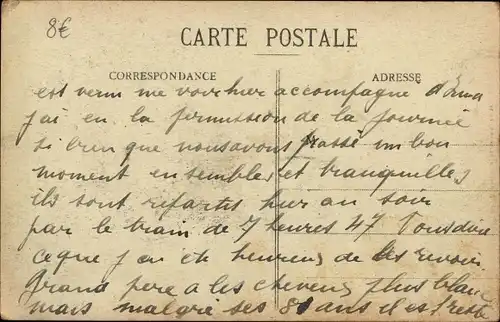 8€
CARTE POSTALE
CORRESPONDANCE
ADRESSE
est venu me voir hier accompagné d'Ema
j'ai eu la permission de la journée
si bien que nous avons passé un bon
moment ensembles et tranquilles
ils sont repartis hier au soir
par le train de 7 heures 47 Vous dire
ce que j'ai été heureux de les revoir
Grand père a les cheveux plus blanc
mais malgré ses 80 ans il est resté